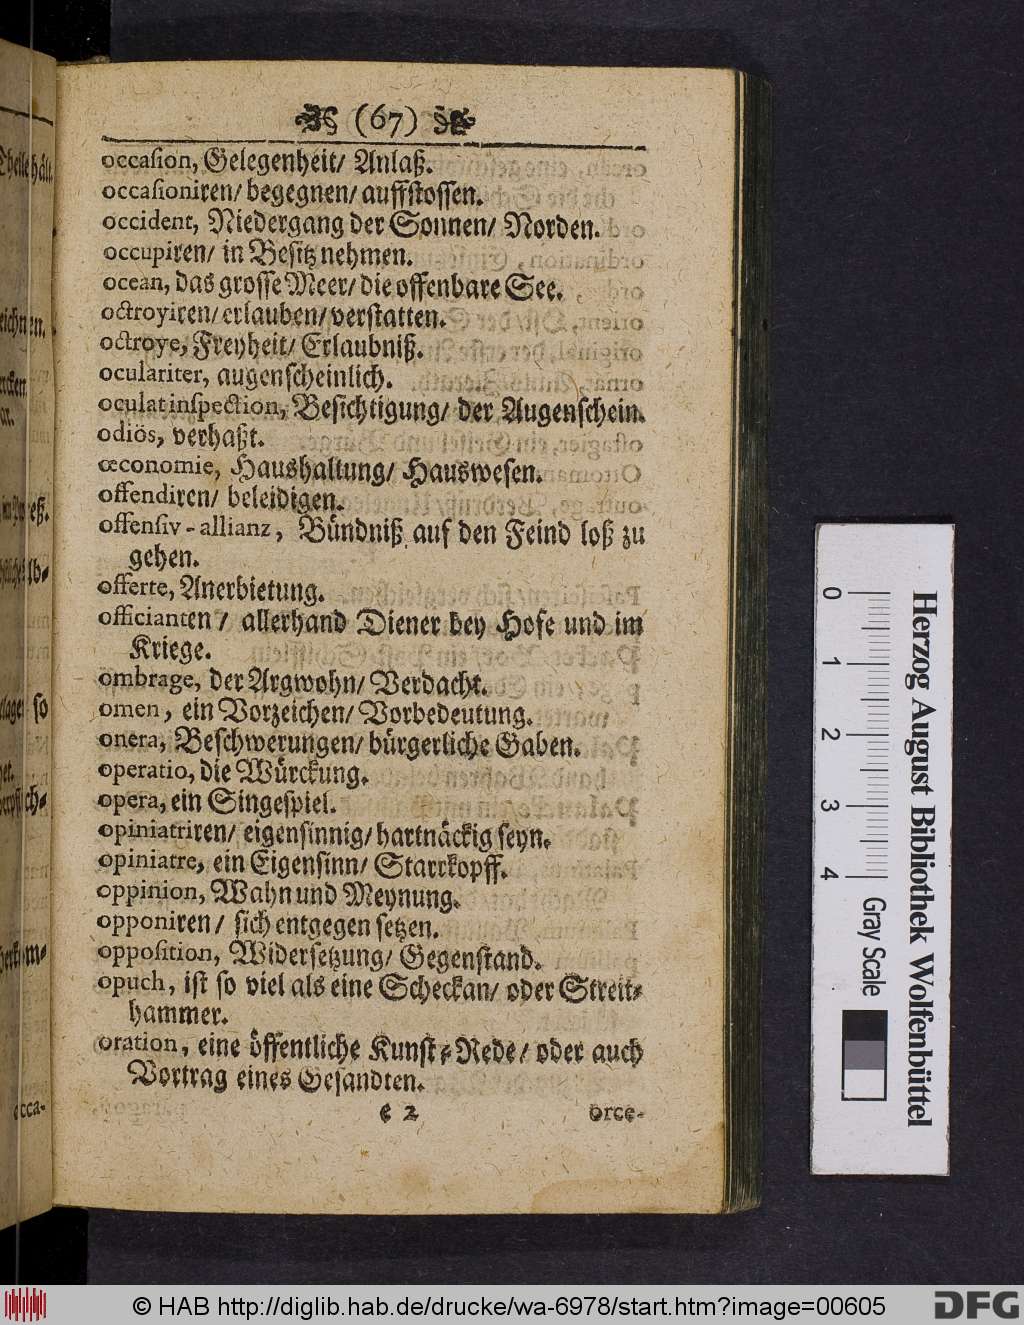 (67)
occasion, Gelegenheit/ Anlaß.
occasioniren/ begegnen/ auffstossen.
occident, Niedergang der Sonnen/ Norden.
occupiren/ in Besitz nehmen.
ocean, das grosse Meer/ die offenbare See.
octroyiren/ erlauben/ verstatten.
octroye, Freyheit/ Erlaubniß.
oculariter, augenscheinlich.
oculat inspection, Besichtigung/ der Augenschein.
odiös, verhaßt.
œconomie, Haushaltung/ Hauswesen.
offendiren/ beleidigen.
offensiv-allianz, Bündniß auf den Feind loß zu
gehen.
offerte, Anerbietung.
officianten/ allerhand Diener bey Hofe und im
Kriege.
ombrage, der Argwohn/ Verdacht.
omen, ein Vorzeichen/ Vorbedeutung.
onera, Beschwerungen/ bürgerliche Gaben.
operatio, die Würckung.
opera, ein Singespiel.
opiniatriren/ eigensinnig/ hartnäckig seyn.
opiniatre, ein Eigensinn/ Starrkopff.
oppinion, Wahn und Meynung.
opponiren/ sich entgegen setzen.
opposition, Widersetzung/ Gegenstand.
opuch, ist so viel als eine Scheckan/ oder Streit-
hammer.
oration, eine öffentliche Kunst-Rede/ oder auch
Vortrag eines Gesandten.
e 2 orce-
0 1 2 3 4 Gray Scale
Herzog August Bibliothek Wolfenbüttel
© HAB http://diglib.hab.de/drucke/wa-6978/start.htm?image=00605
DFG